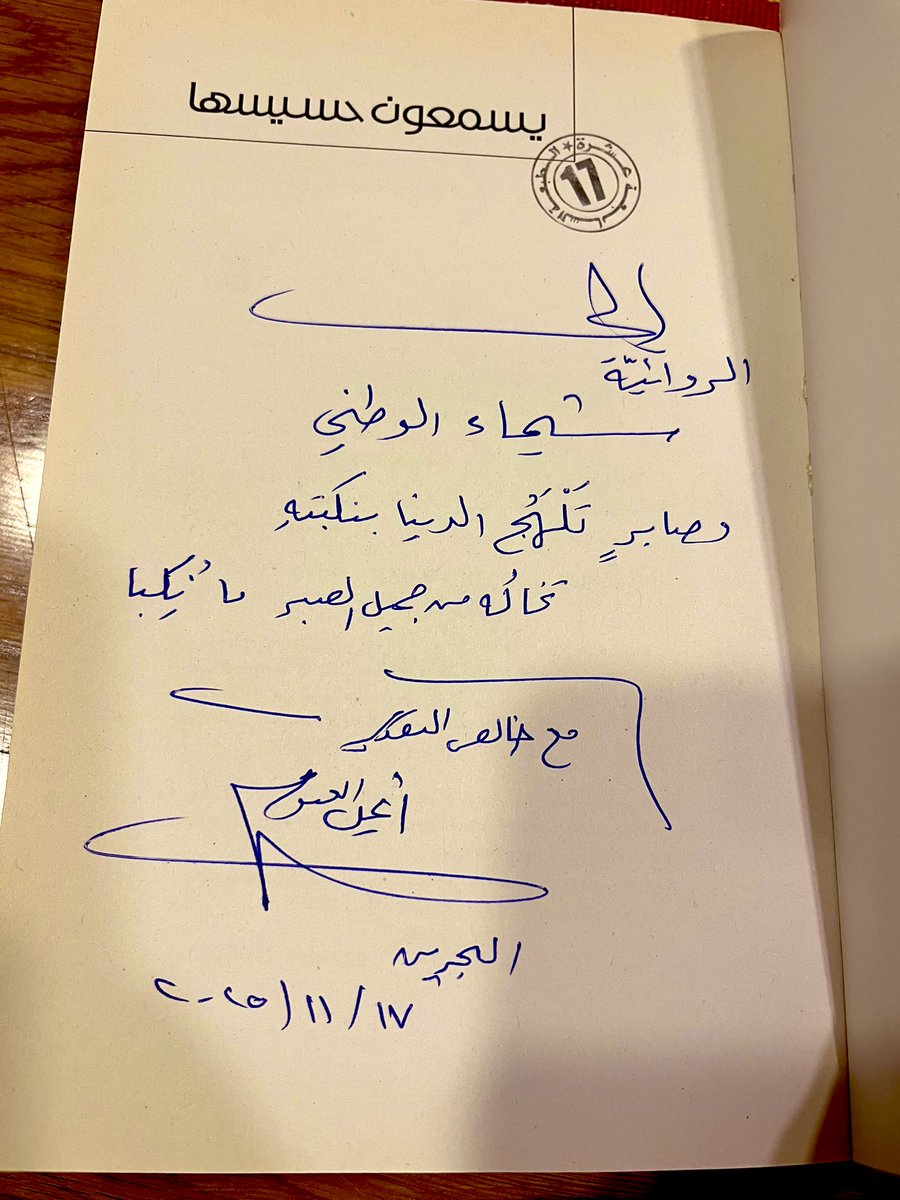 يسمعون حسيسها
الطبعة السابعة عشرة
17
إلى
الروائيّة
شيماء الوطني
وصابرٍ تَلْهَجُ الدنيا بنكبتهِ
تخالُه من جميل الصبر ما نُكِبا
مع خالص التقدير
أيمن العتوم
البحرين
٢٠٢٥/١١/١٧